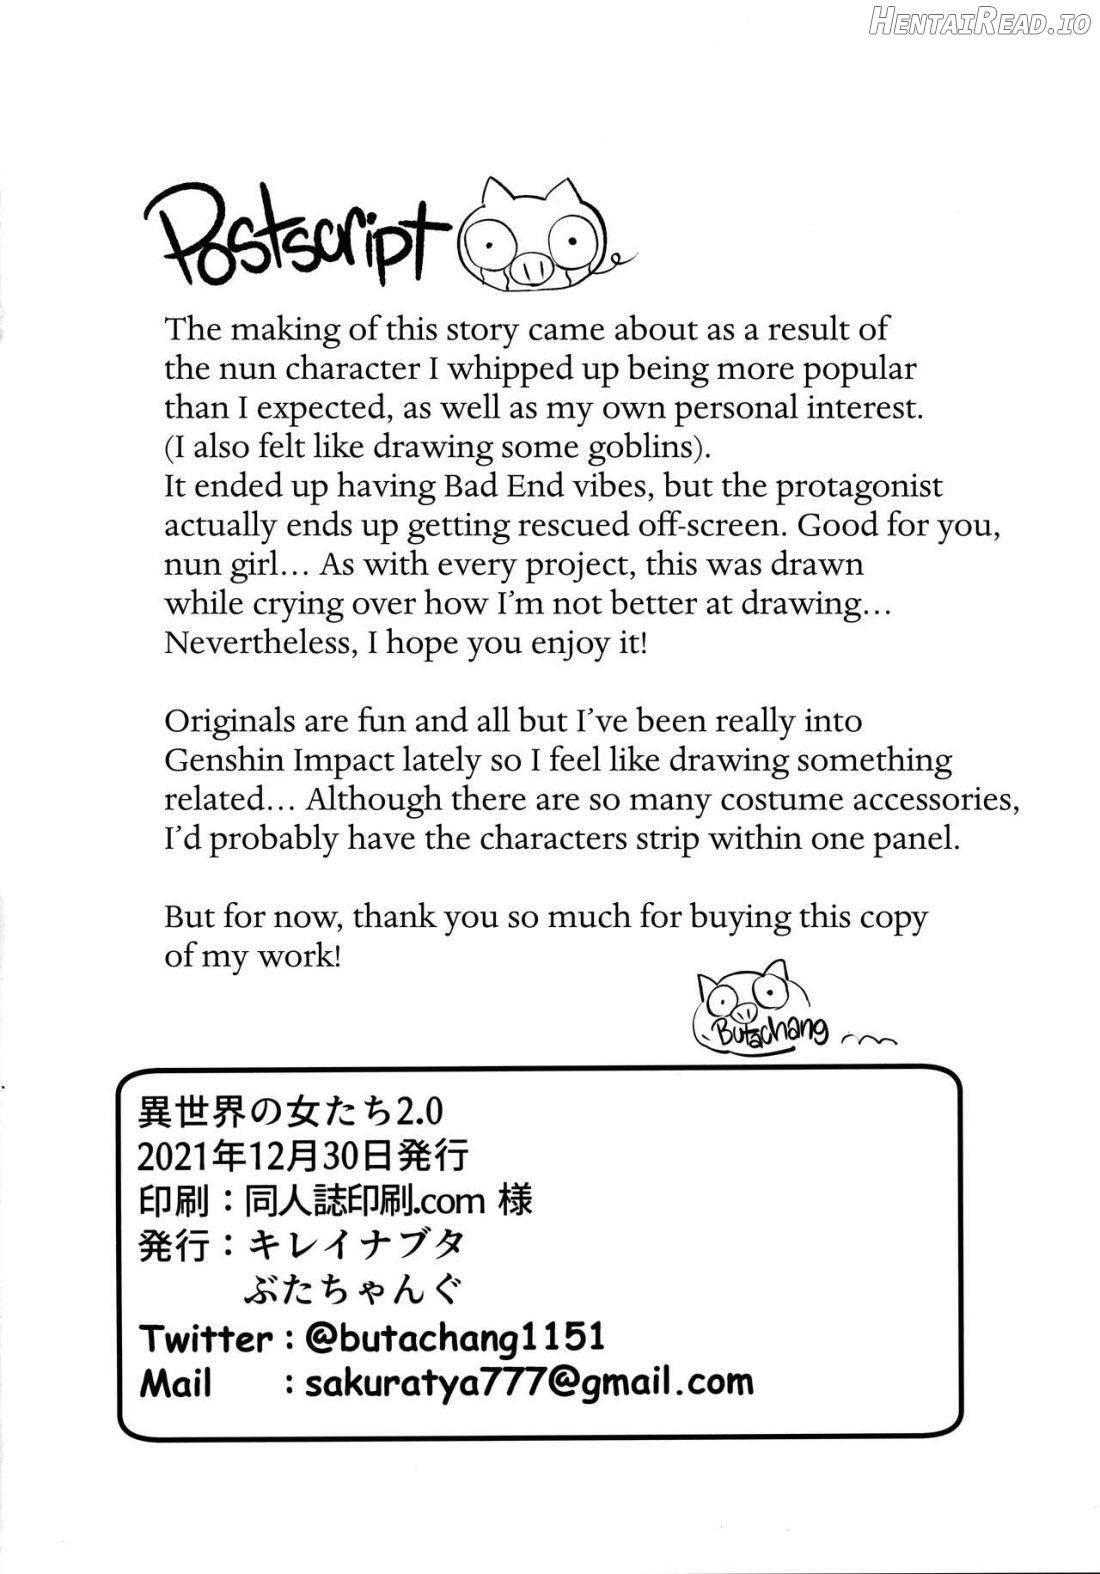 HentaiRead.io
Postscript
The making of this story came about as a result of
the nun character I whipped up being more popular
than I expected, as well as my own personal interest.
(I also felt like drawing some goblins).
It ended up having Bad End vibes, but the protagonist
actually ends up getting rescued off-screen. Good for you,
nun girl… As with every project, this was drawn
while crying over how I'm not better at drawing…
Nevertheless, I hope you enjoy it!
Originals are fun and all but I've been really into
Genshin Impact lately so I feel like drawing something
related… Although there are so many costume accessories,
I'd probably have the characters strip within one panel.
But for now, thank you so much for buying this copy
of my work!
Butachang
異世界の女たち2.0
2021年12月30日発行
印刷：同人誌印刷.com 様
発行：キレイナブタ
ぶたちゃんぐ
Twitter : @butachang1151
Mail : sakuratya777@gmail.com